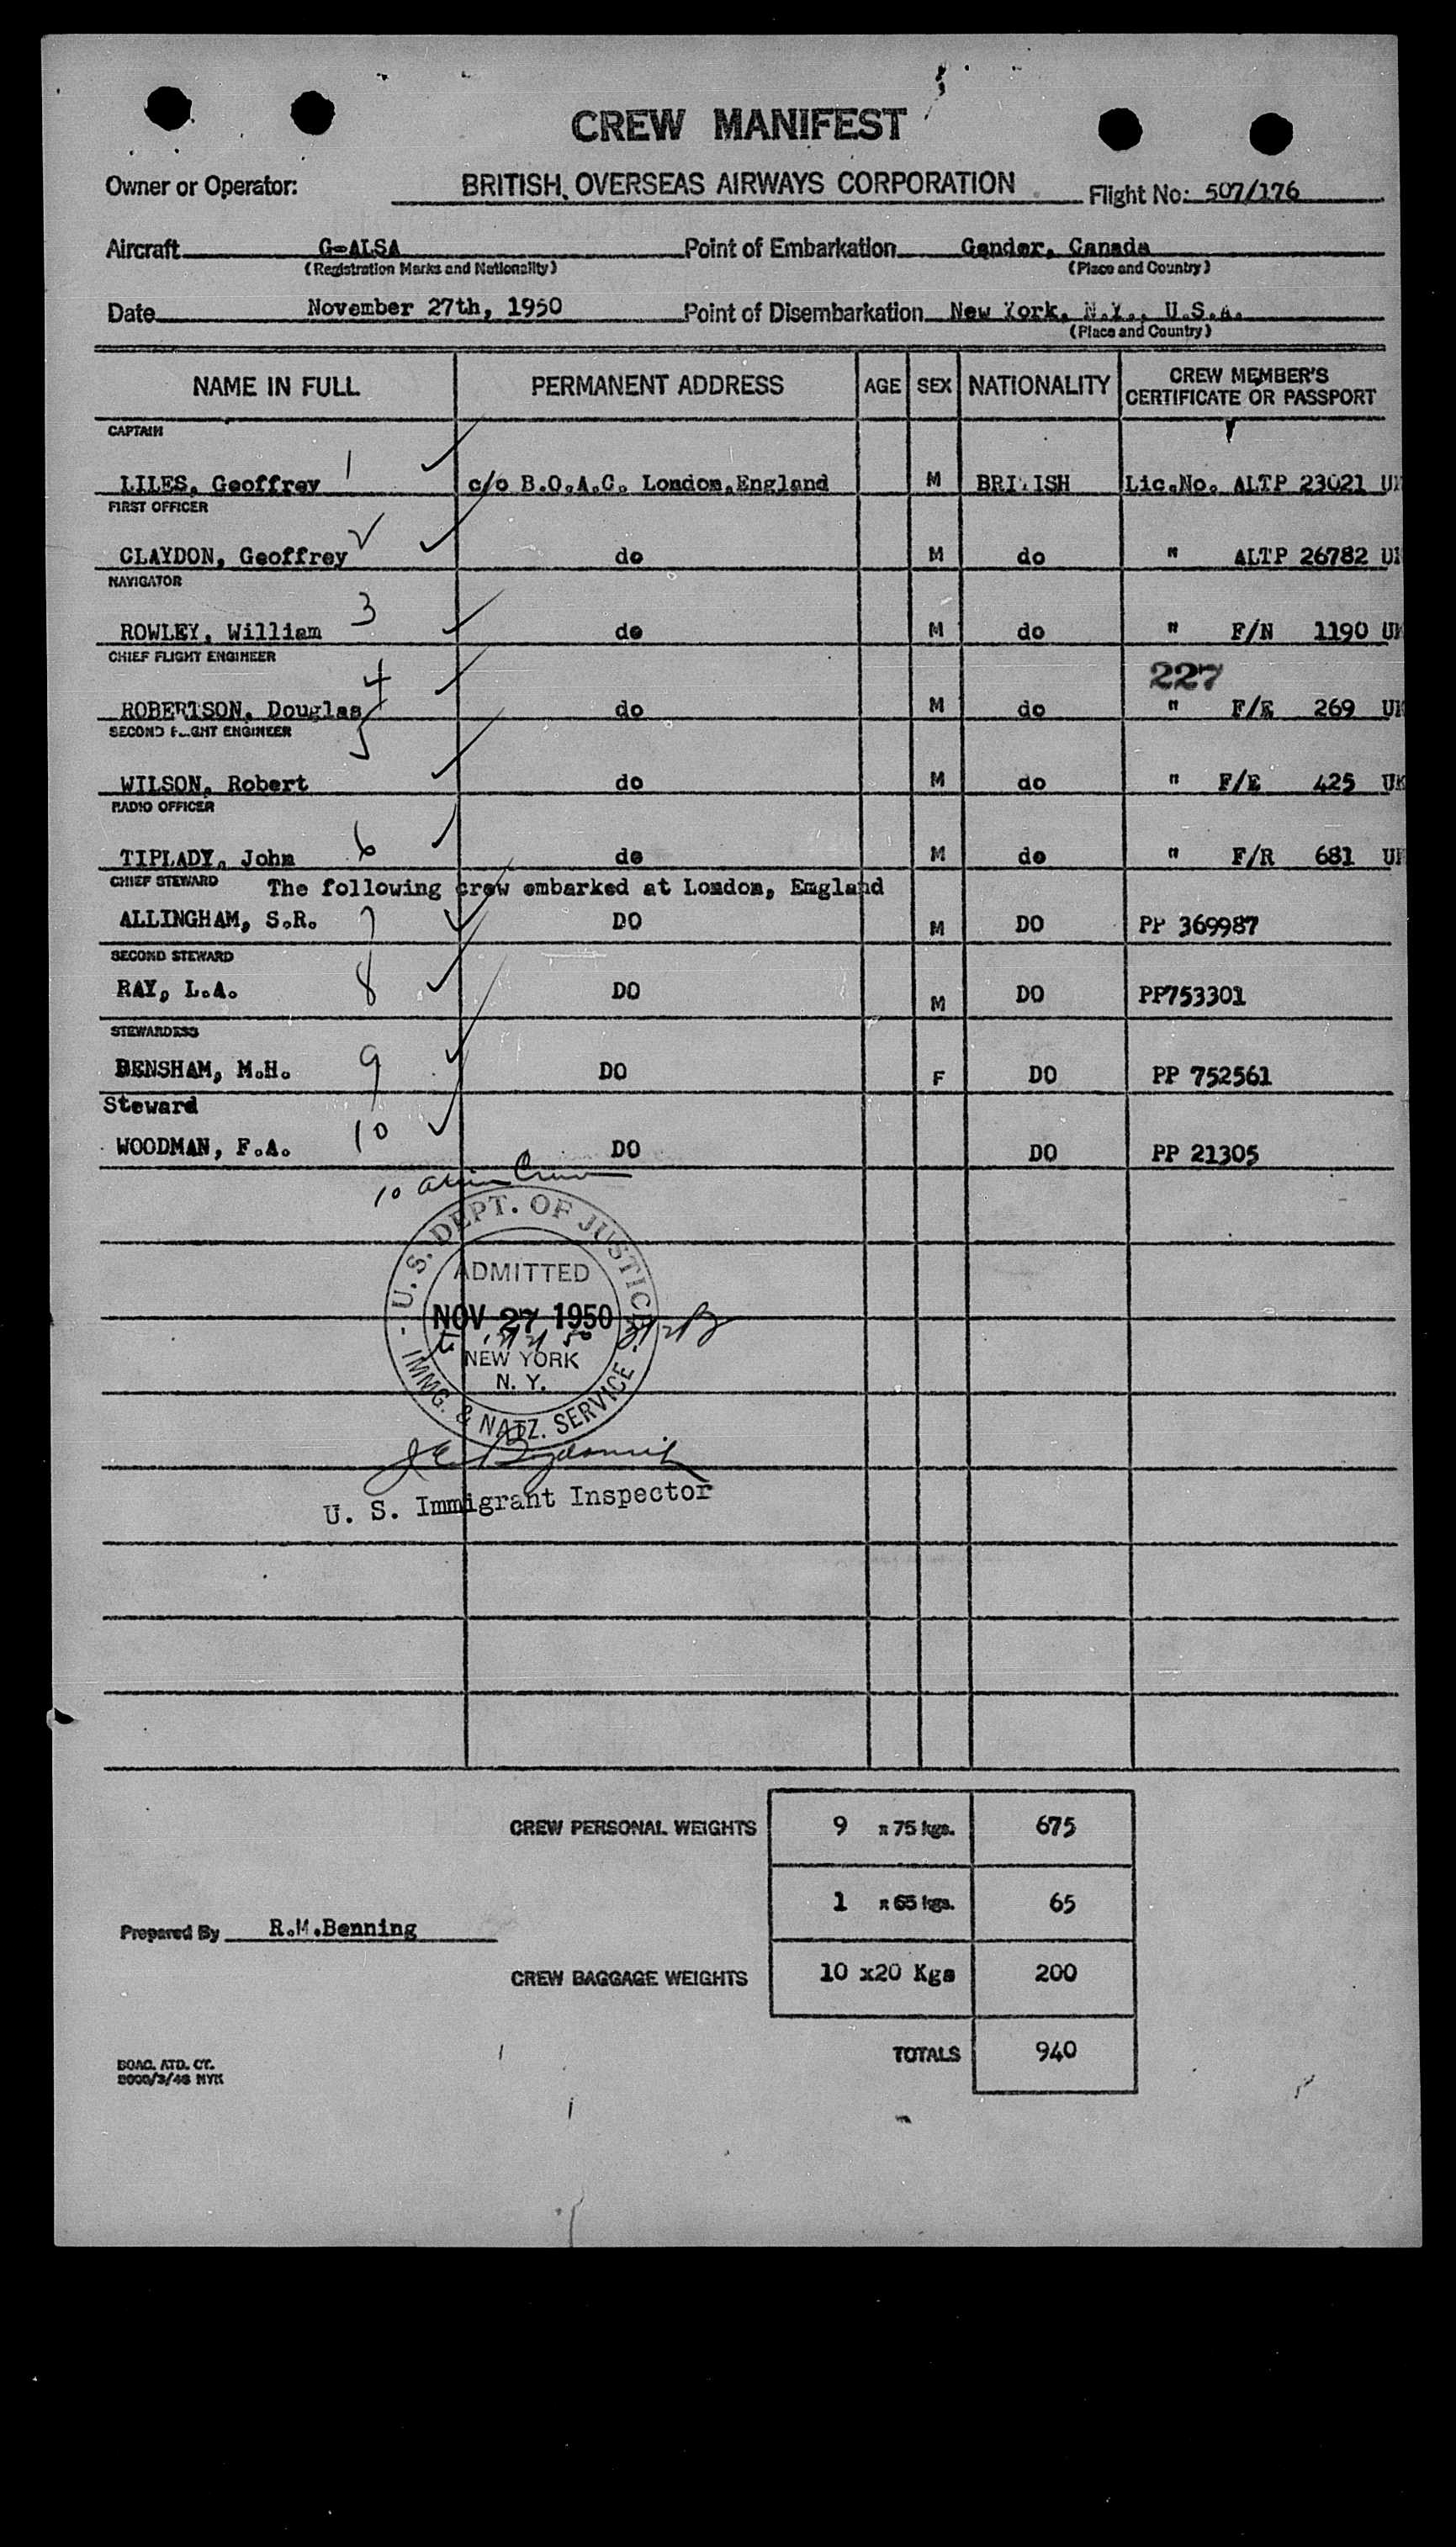 CREW MANIFEST
Owner or Operator: BRITISH OVERSEAS AIRWAYS CORPORATION Flight No: 507/176
Aircraft G-ALSA Point of Embarkation Gander, Canada
(Registration Marks and Nationality) (Place and Country)
Date November 27th, 1950 Point of Disembarkation New York, N.Y., U.S.A.
(Place and Country)
NAME IN FULL PERMANENT ADDRESS AGE SEX NATIONALITY CREW MEMBER'S CERTIFICATE OR PASSPORT
CAPTAIN
LILES, Geoffrey 1 c/o B.O.A.C. London,England M BRITISH Lic.No. ALTP 23021 UK
FIRST OFFICER
CLAYDON, Geoffrey 2 do M do " ALTP 26782 UK
NAVIGATOR
ROWLEY, William 3 do M do " F/N 1190 UK
CHIEF FLIGHT ENGINEER 227
ROBERTSON, Douglas 4 do M do " F/E 269 UK
SECOND FLIGHT ENGINEER
WILSON, Robert 5 do M do " F/E 425 UK
RADIO OFFICER
TIPLADY, John 6 do M do " F/R 681 UK
CHIEF STEWARD The following crew embarked at London, England
ALLINGHAM, S.R. 7 DO M DO PP 369987
SECOND STEWARD
RAY, L.A. 8 DO M DO PP753301
STEWARDESS
BENSHAM, M.H. 9 DO F DO PP 752561
Steward
WOODMAN, F.A. 10 DO DO PP 21305
10 alien Crew
U.S. DEPT. OF JUSTICE
ADMITTED
NOV 27 1950
NEW YORK
N. Y.
IMMG. & NATZ. SERVICE
U. S. Immigrant Inspector
CREW PERSONAL WEIGHTS 9 x 75 kgs. 675
1 x 65 kgs. 65
Prepared By R.M.Benning
CREW BAGGAGE WEIGHTS 10 x20 Kgs 200
TOTALS 940
BOAC. ATD. CT.